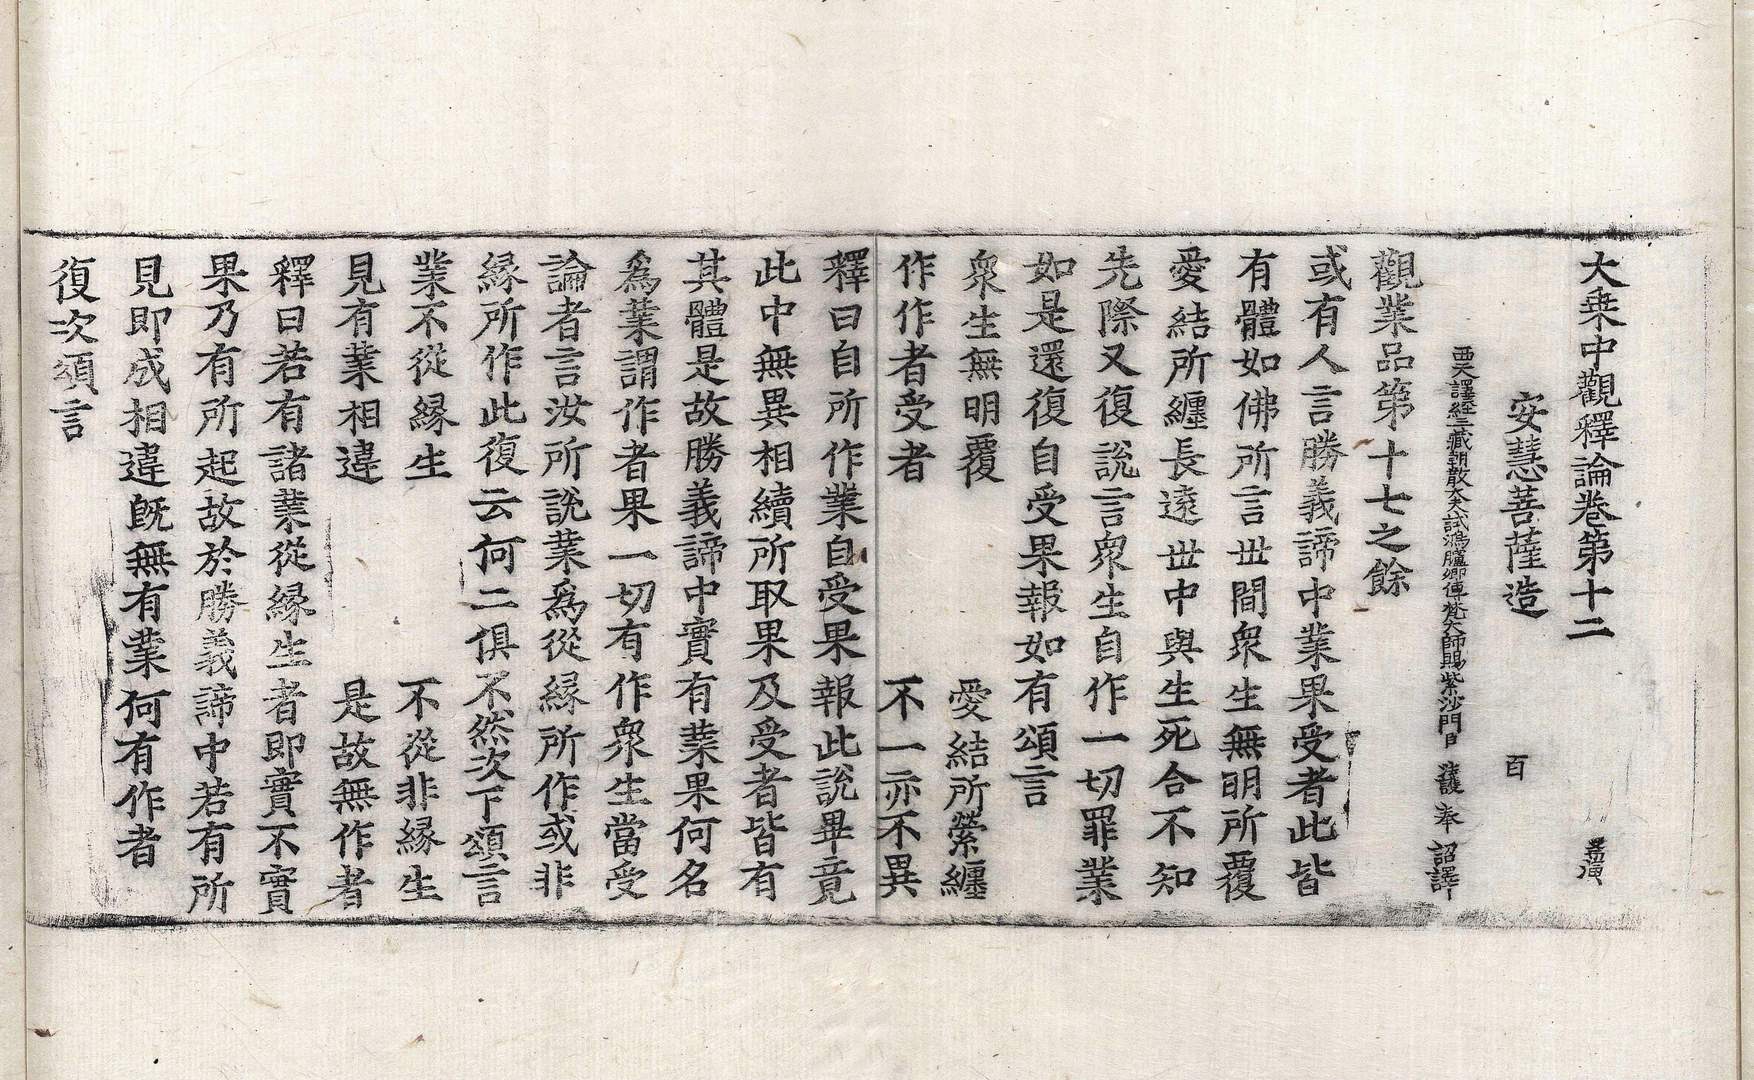 大乗中觀釋論卷第十二
安慧菩薩造 百
西天譯經三藏朝散大夫試鴻臚卿傳梵大師賜紫沙門臣法護奉 詔譯
觀業品第十七之餘
或有人言勝義諦中業果受者此皆
有體如佛所言世間衆生無明所覆
愛結所纏長遠世中與生死合不知
先際又復說言衆生自作一切罪業
如是還復自受果報如有頌言
衆生無明覆 愛結所縈纏
作作者受者 不一亦不異
釋曰自所作業自受果報此說畢竟
此中無異相續所取果及受者皆有
其體是故勝義諦中實有業果何名
爲業謂作者果一切有作衆生當受
論者言汝所說業爲從緣所作或非
緣所作此復云何二俱不然次下頌言
業不從緣生 不從非緣生
見有業相違 是故無作者
釋曰若有諸業從緣生者即實不實
果乃有所起故於勝義諦中若有所
見即成相違旣無有業何有作者
復次頌言